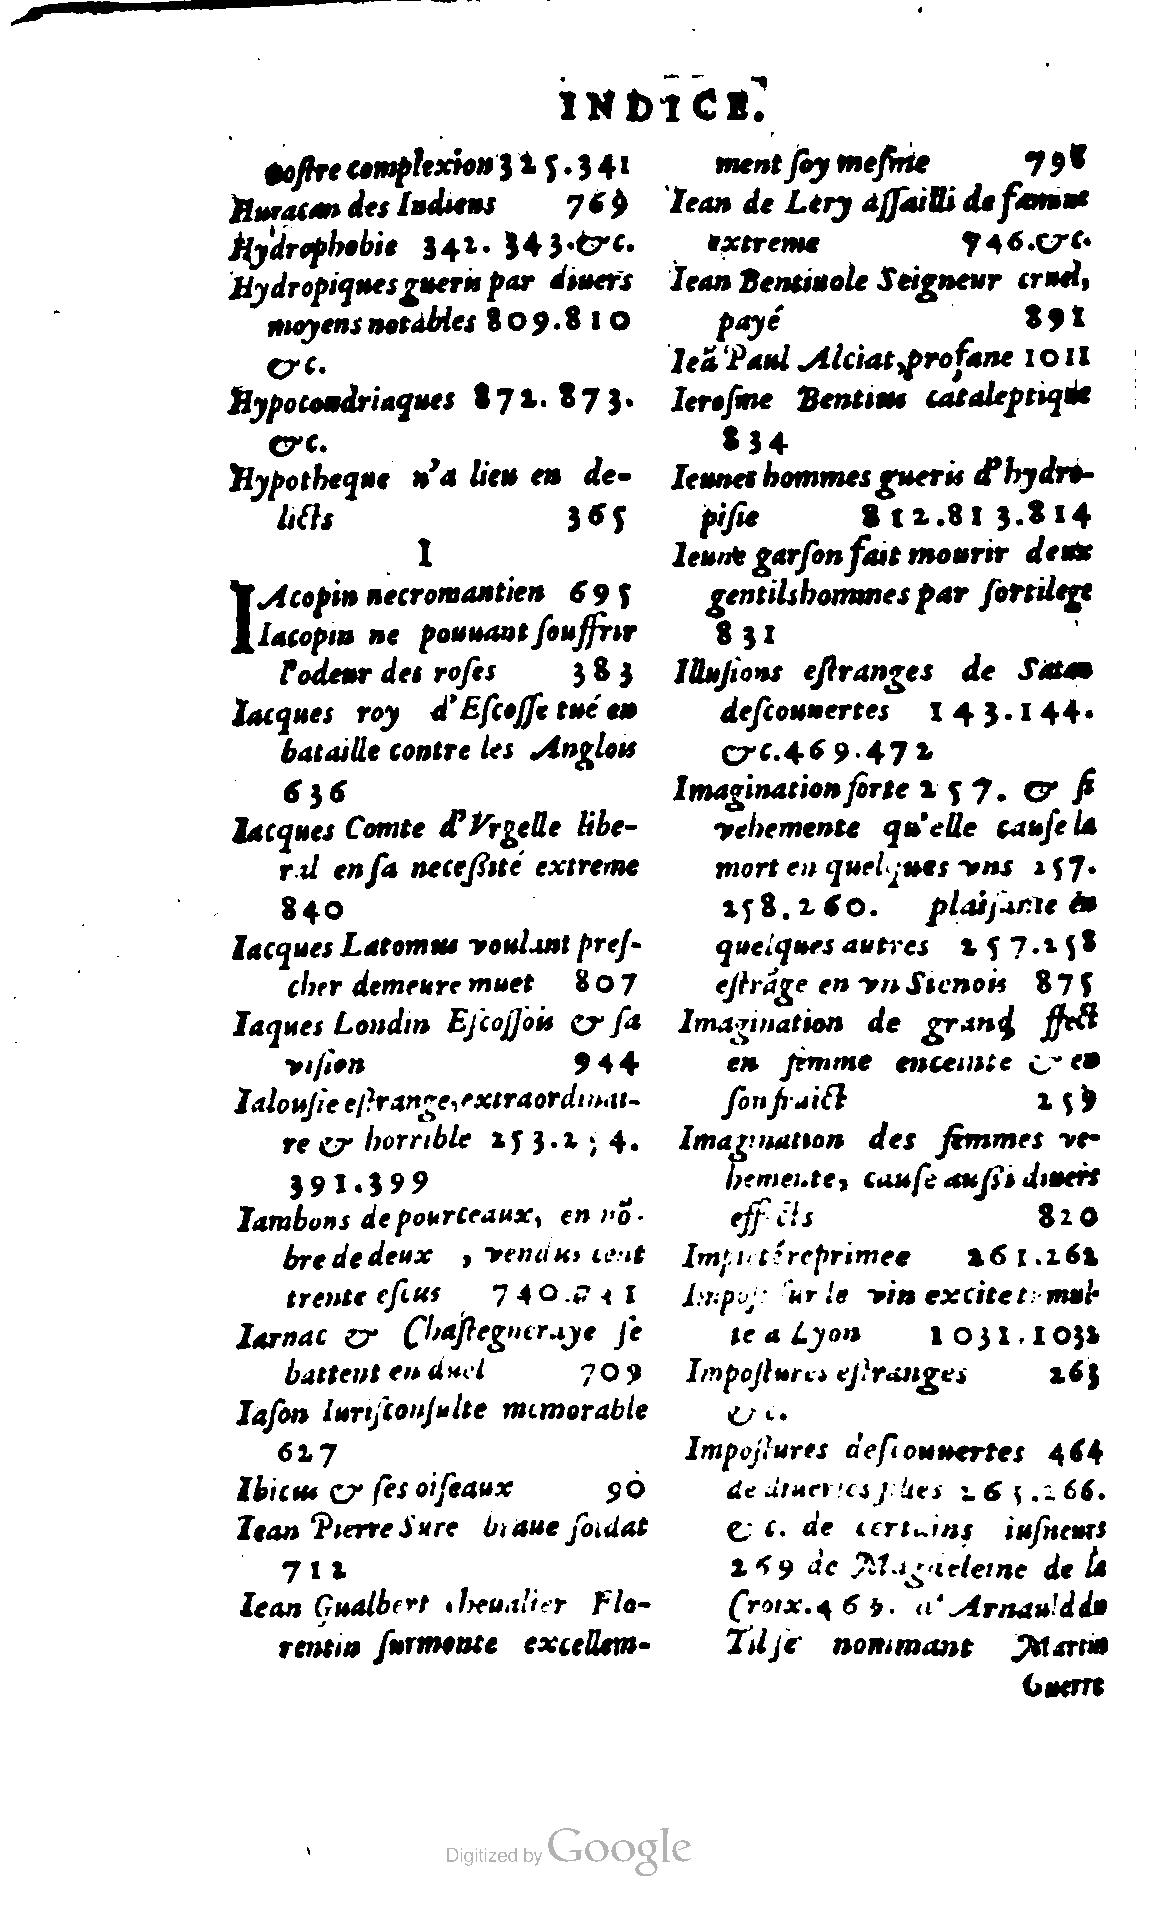 INDICE.
noſtre complexion 325.341
Huracan des Indiens 769
Hydrophobie 342. 343.&c.
Hydropiques gueris par diuers
moyens notables 809.810
&c.
Hypocondriaques 872. 873.
&c.
Hypotheque n'a lieu en de-
licts 365
I
IAcopin necromantien 695
Iacopin ne pouuant ſouffrir
l'odeur des roſes 383
Iacques roy d'Eſcoſſe tué en
bataille contre les Anglois
636
Iacques Comte d'Vrgelle libe-
ral en ſa neceſsité extreme
840
Iacques Latomus voulant preſ-
cher demeure muet 807
Iaques Londin Eſcoſſois & ſa
viſion 944
Ialouſie eſtrange, extraordinai-
re & horrible 253.254.
391.399
Iambons de pourceaux, en nõ-
bre de deux , vendus cent
trente eſcus 740.
Iarnac & Chaſtegneraye ſe
battent en duel 709
Iaſon Iuriſconſulte memorable
627
Ibicus & ſes oiſeaux 90
Iean Pierre Sure braue ſoldat
712
Iean Gualbert cheualier Flo-
rentin ſurmonte excellem-
ment ſoy meſme 798
Iean de Lery aſſailli de famine
extreme 746.&c.
Iean Bentiuole Seigneur cruel,
payé 891
Ieã Paul Alciat, profane 1011
Ieroſme Bentius cataleptique
834
Ieunes hommes gueris d'hydro-
piſie 812.813.814
Ieune garſon fait mourir deux
gentilshommes par ſortilege
831
Illuſions eſtranges de Satan
deſcouuertes 143.144.
&c.469.472
Imagination forte 257. & ſi
vehemente qu'elle cauſe la
mort en quelques vns 257.
258.260. plaiſante en
quelques autres 257.258
eſtrãge en vn Sienois 875
Imagination de grand effect
en femme enceinte & en
ſon fruict 259
Imagination des femmes ve-
hemente, cauſe auſſi diuers
effects 820
Impieté reprimee 261.262
Impoſt ſur le vin excite tumul-
te a Lyon 1031.1032
Impoſtures eſtranges 263
&c.
Impoſtures deſcouuertes 464
de diuerſes 265.266.
&c. de certains
269 de Magdeleine de la
Croix.465. d'Arnauld du
Til ſe nommant Martin
Guerre